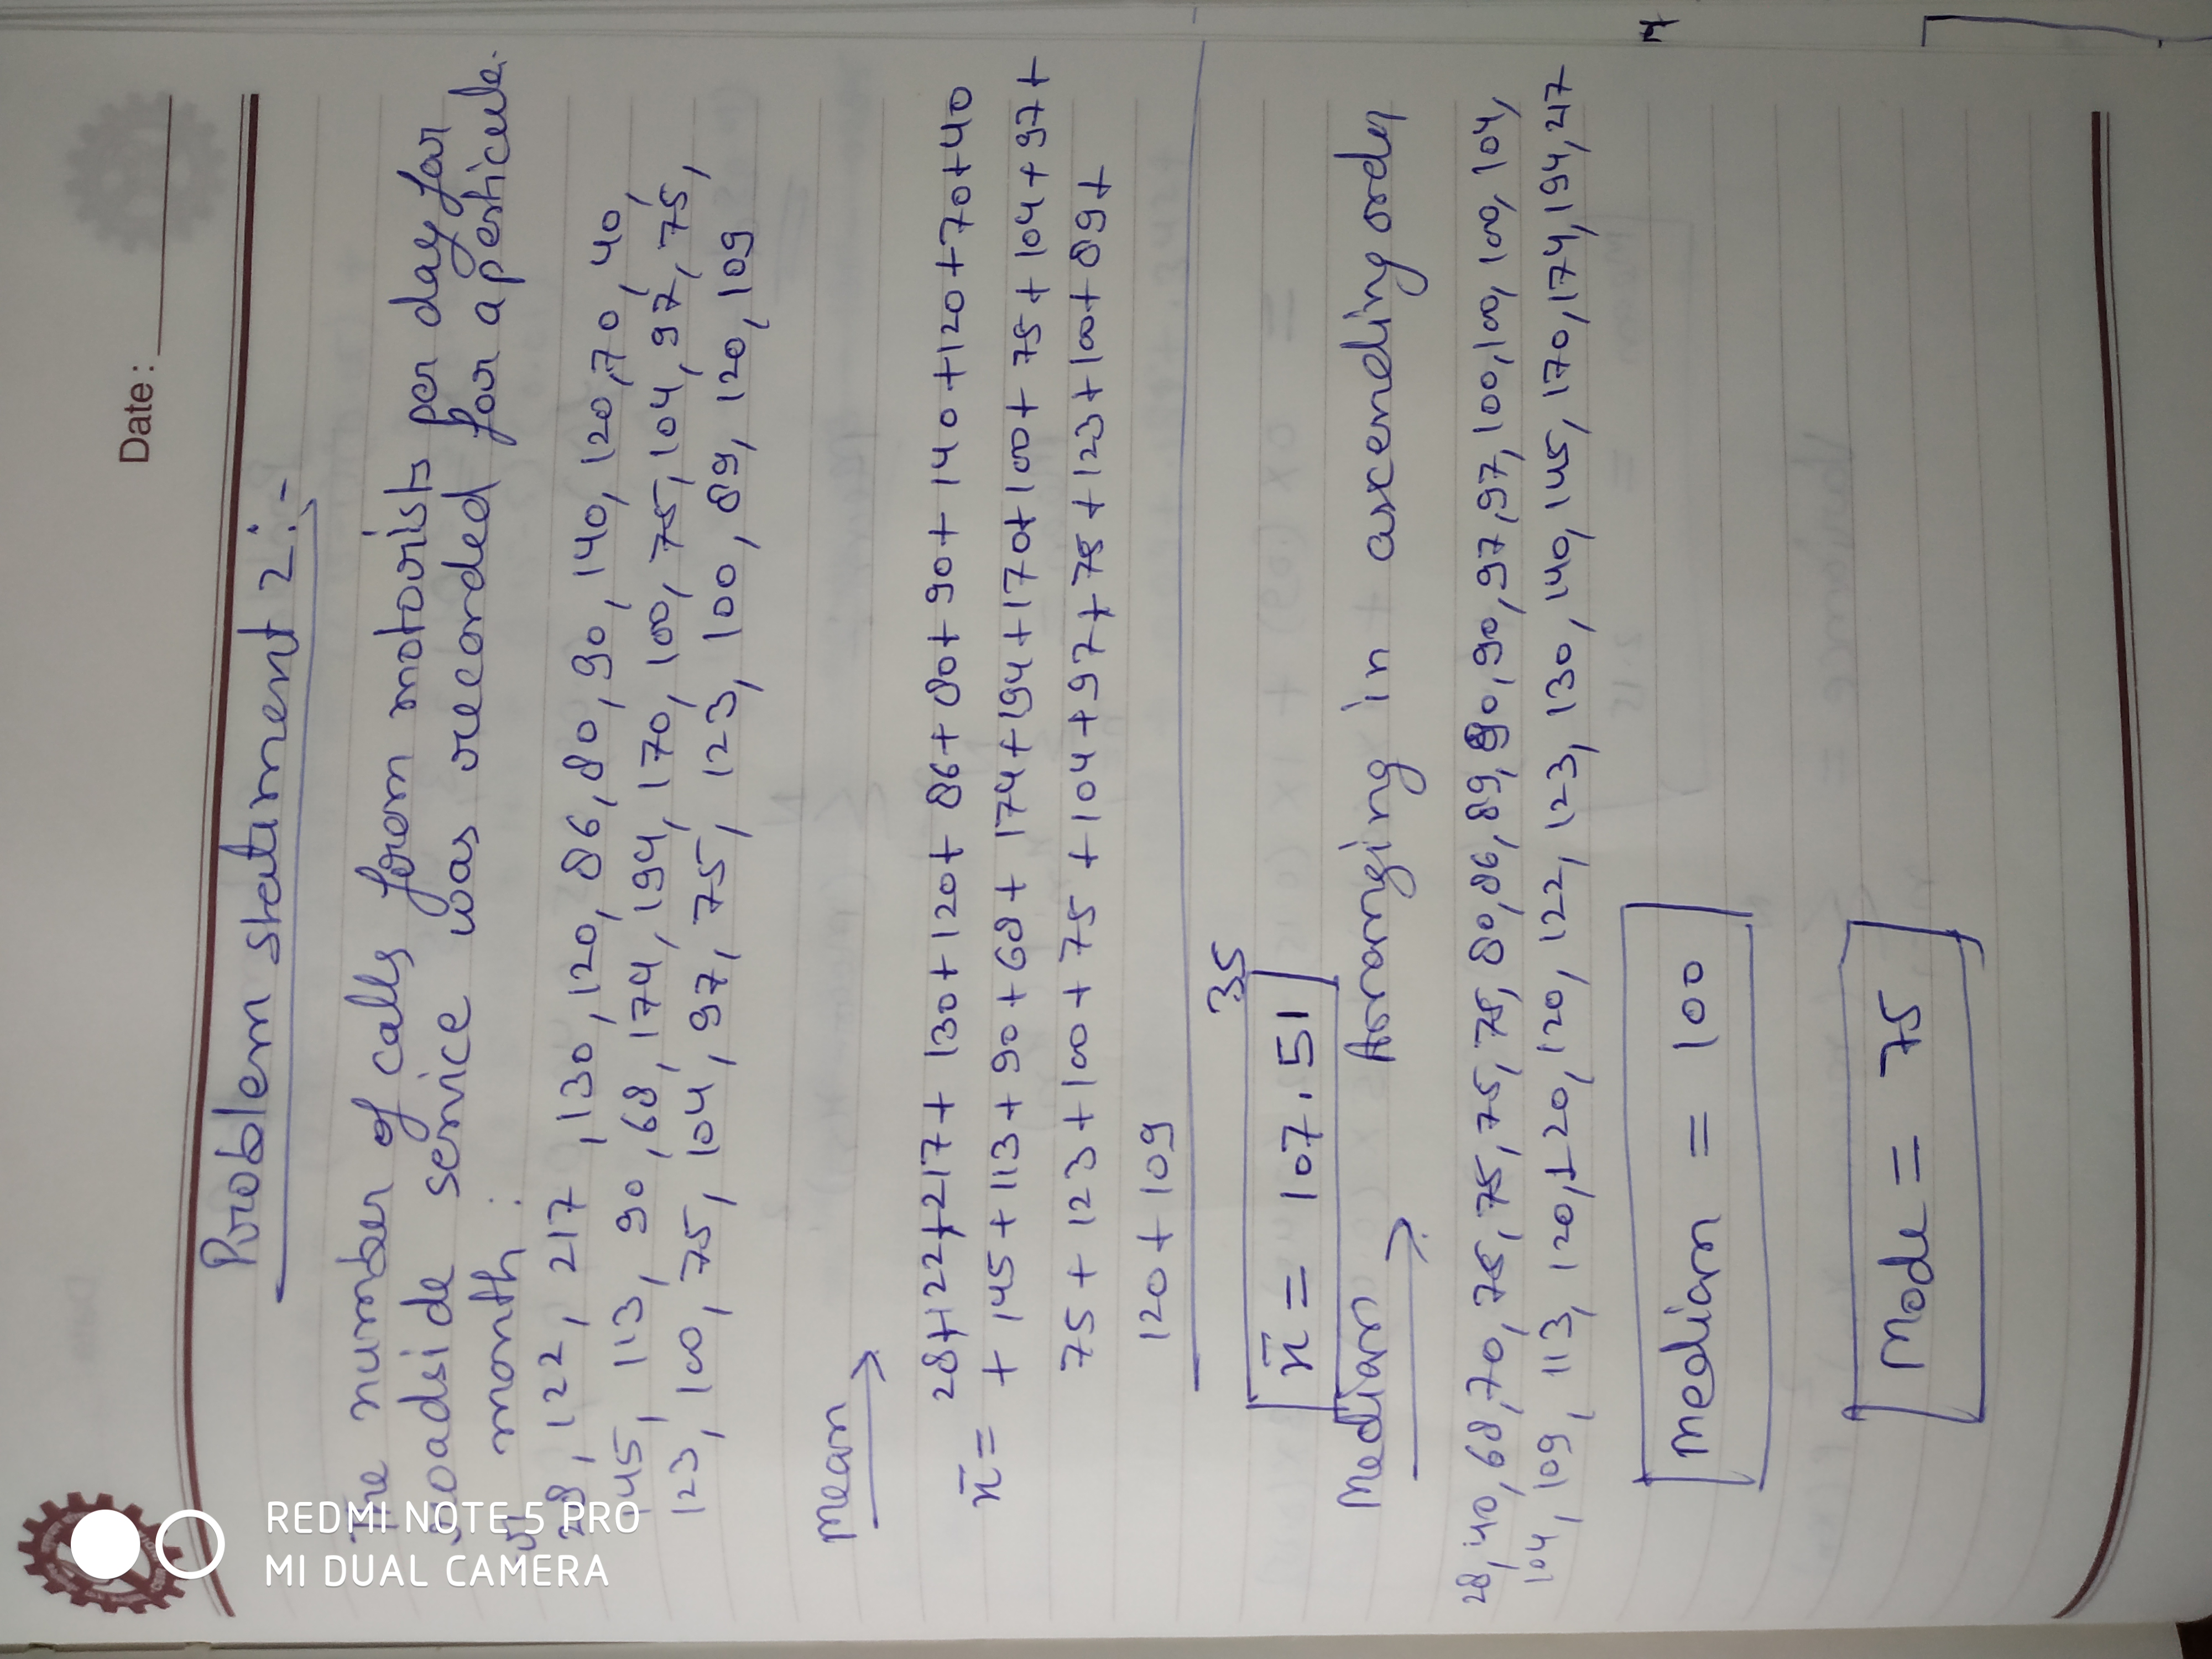 Date:
Problem statement 2:-
The number of calls from motorists per day for
roadside service was recorded for a perticular
month :
28, 122, 217, 130, 120, 86, 80, 90, 140, 120, 70, 40,
145, 113, 90, 68, 174, 194, 170, 100, 75, 104, 97, 75,
123, 100, 75, 104, 97, 75, 123, 100, 89, 120, 109
Mean
x̄ = 28+122+217+ 130+120+ 86+ 80+ 90+ 140+120+70+40
+ 145+113+90+68+ 174+194+170+100+ 75+104+97+
75+ 123+100+75+104+97+75+123+100+89+
120+109
35
x̄ = 107.51
Median
Arranging in ascending order
28, 40, 68, 70, 75, 75, 75, 75, 80, 86, 89, 90, 90, 97, 97, 100, 100, 100, 104,
104, 109, 113, 120, 120, 120, 122, 123, 130, 140, 145, 170, 174, 194, 217
Median = 100
Mode = 75
REDMI NOTE 5 PRO
MI DUAL CAMERA